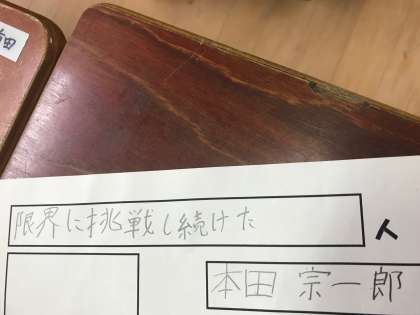 田
限界に挑戦し続けた
人
本田 宗一郎